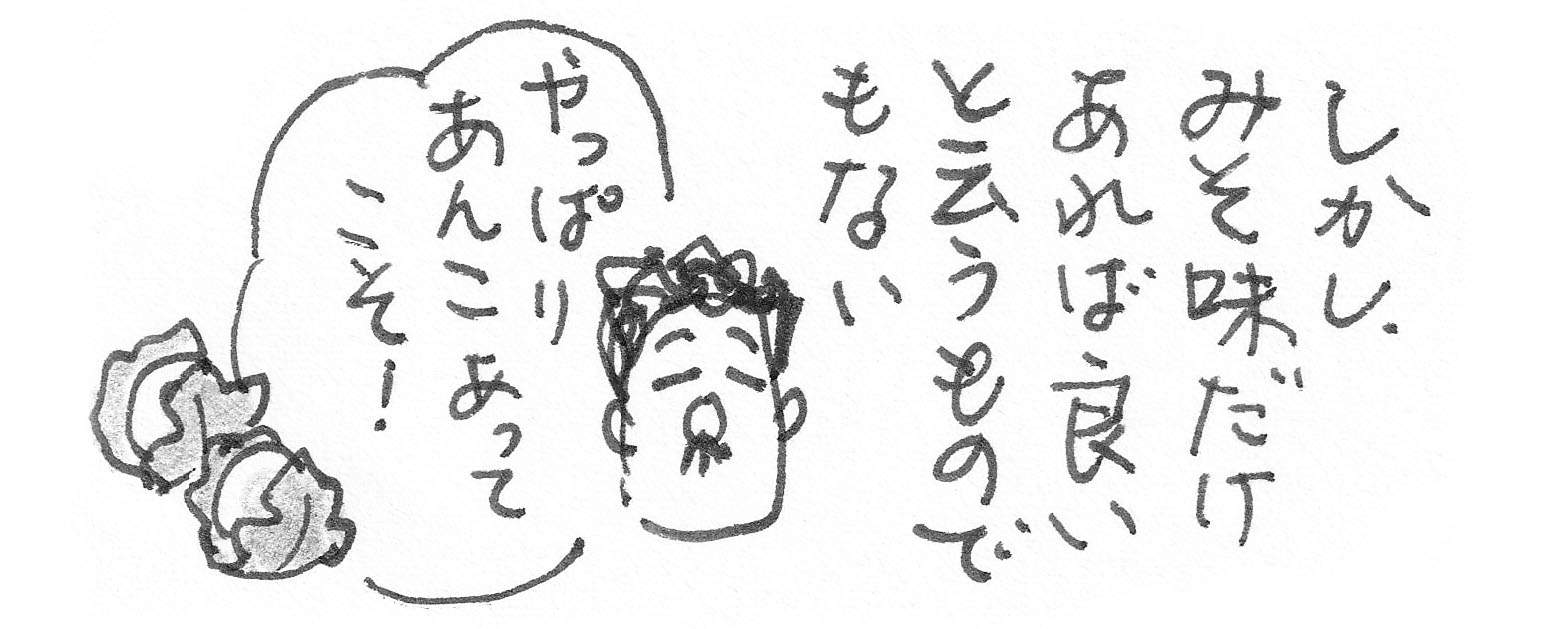 しかし、
みそ味だけ
あれば良い
と云うもので
もない
やっぱり
あんこあって
こそ!